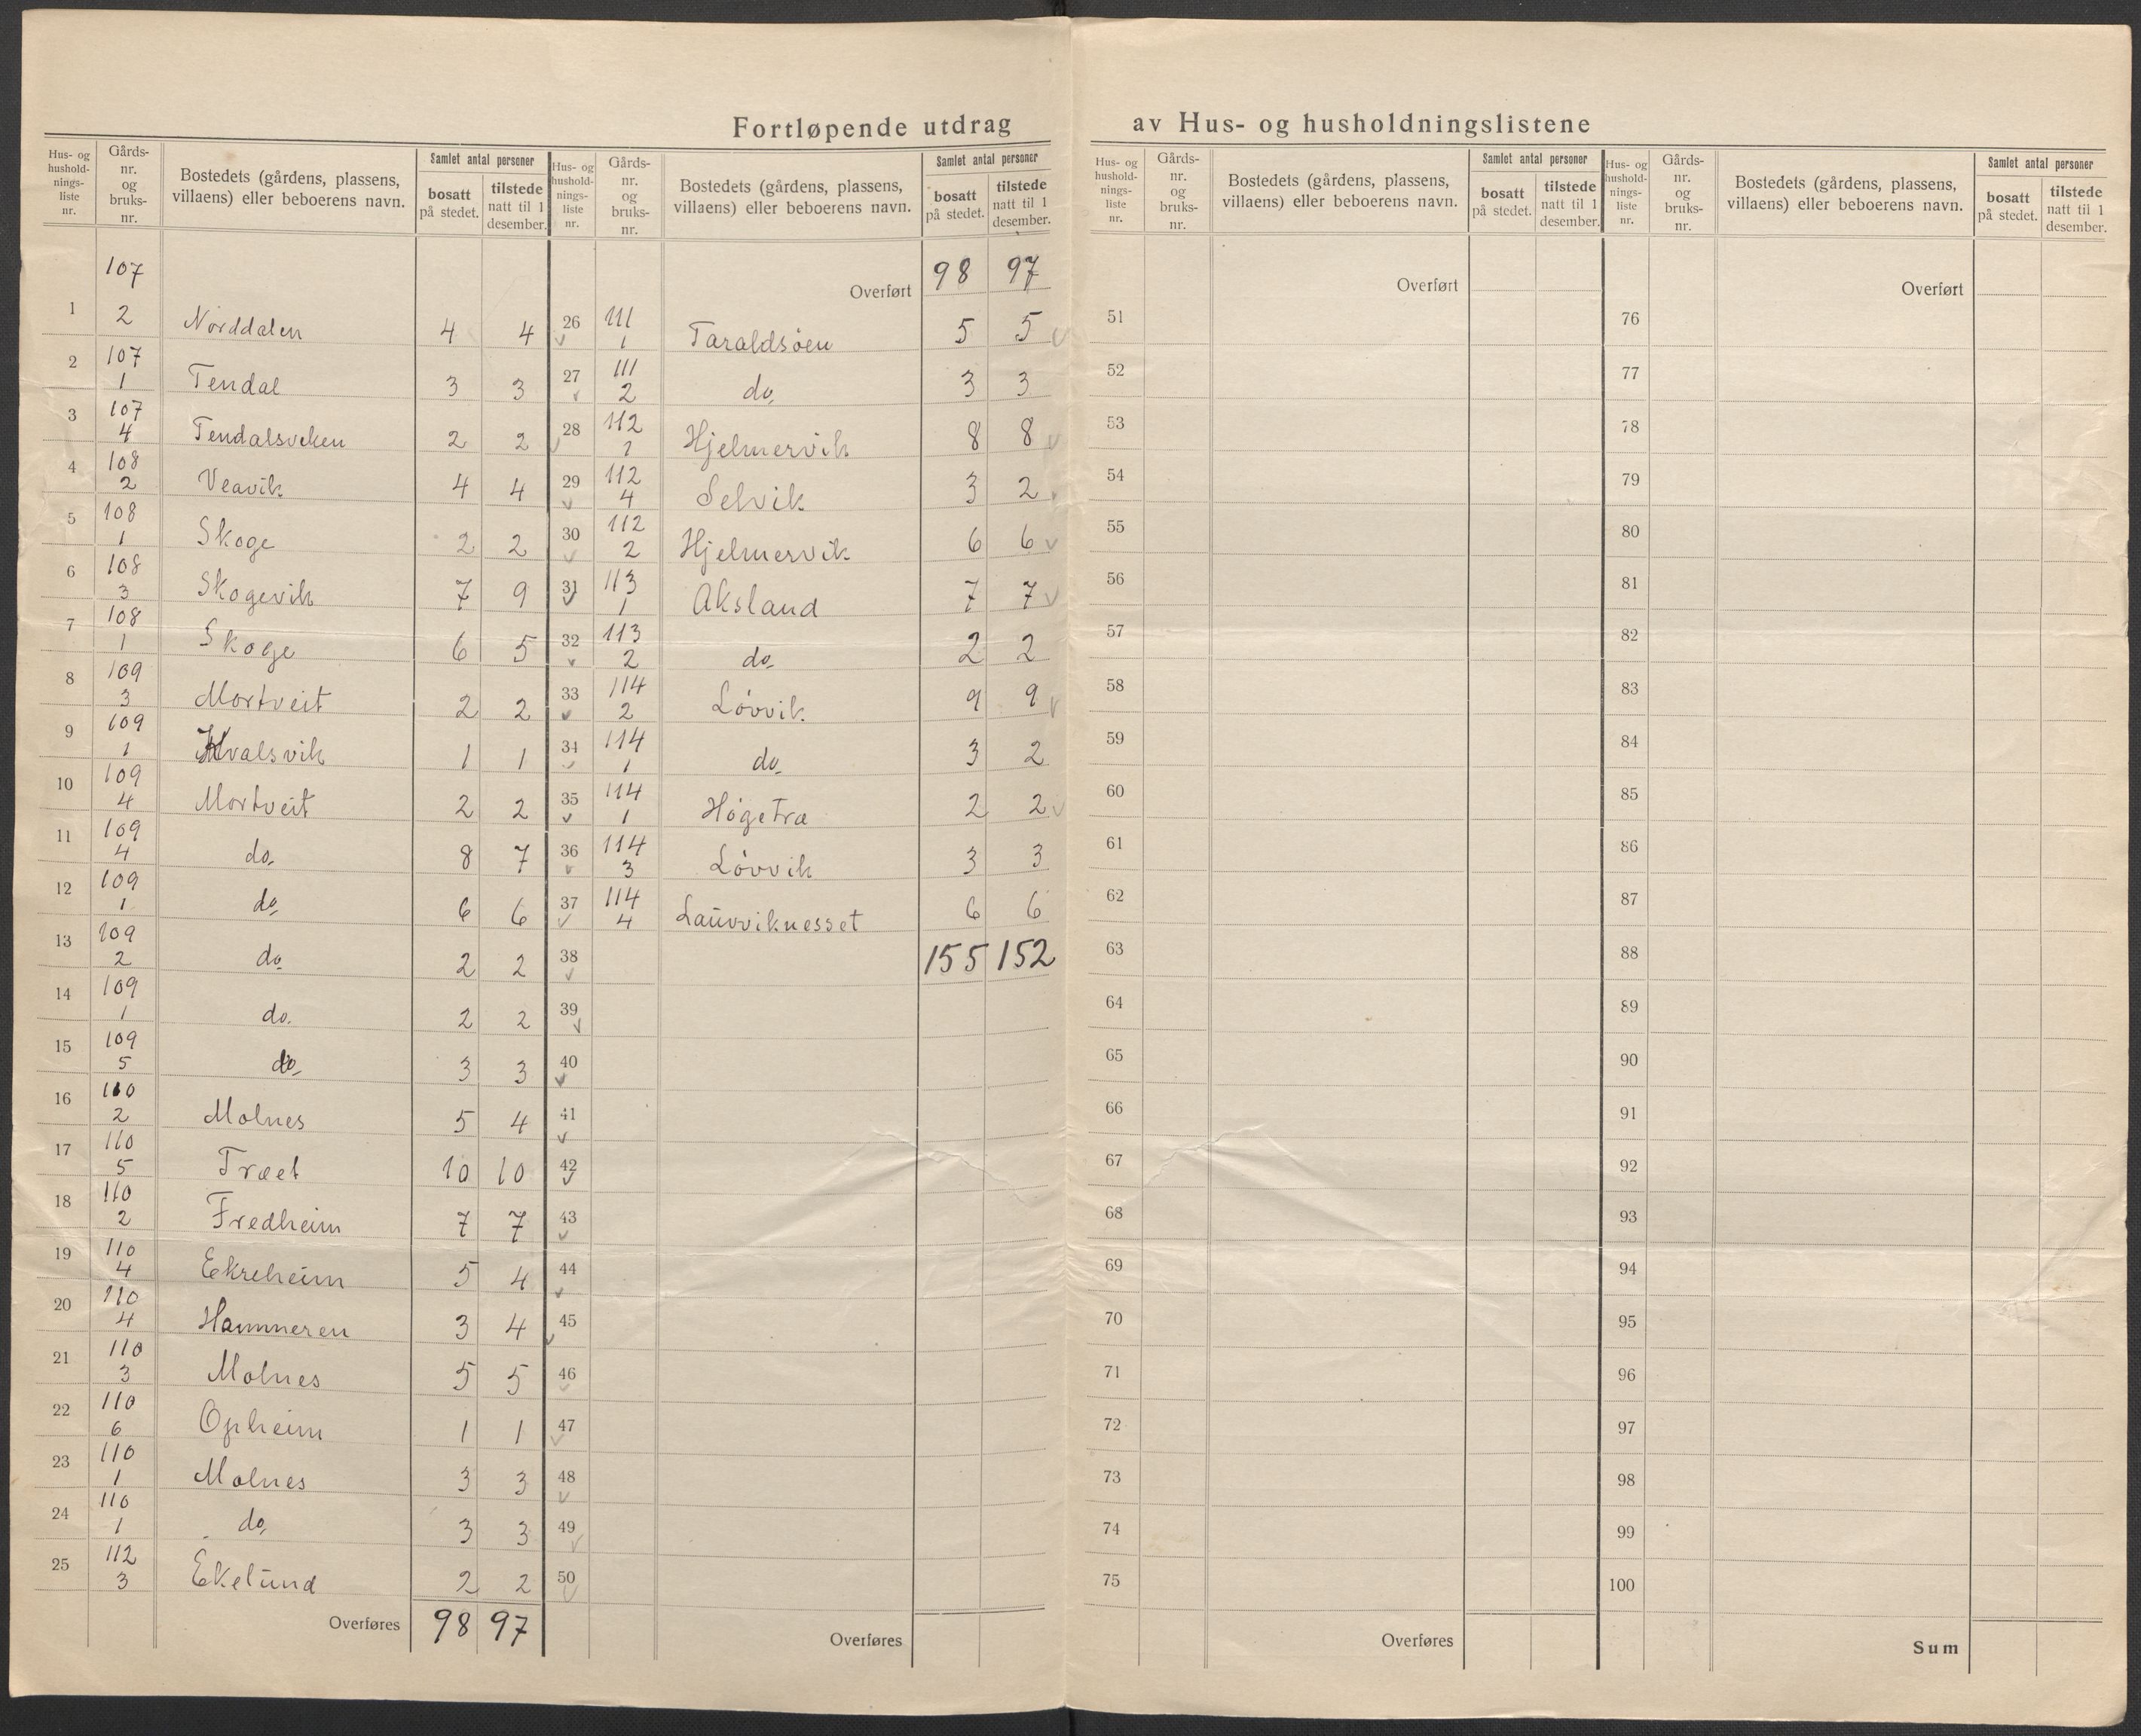 Fortløpende utdrag av Hus- og husholdningslistene
Hus- og hushold-nings-liste nr. | Gårds-nr. og bruks-nr. | Bostedets (gårdens, plassens, villaens) eller beboerens navn. | Samlet antal personer | bosatt på stedet. | tilstede natt til 1 desember.
1 107 2 Norddalen 4 4
2 107 1 Tendal 3 3
3 107 4 Tendalsveken 2 2
4 108 2 Veavik 4 4
5 108 1 Skoge 2 2
6 108 3 Skogevik 7 9
7 108 1 Skoge 6 5
8 109 3 Mortveit 2 2
9 109 1 Kvalsvik 1 1
10 109 4 Mortveit 2 2
11 109 4 do. 8 7
12 109 1 do. 6 6
13 109 2 do. 2 2
14 109 1 do. 2 2
15 109 5 do. 3 3
16 110 2 Molnes 5 4
17 110 5 Træet 10 10
18 110 2 Fredheim 7 7
19 110 4 Ekreheim 5 4
20 110 4 Hammeren 3 4
21 110 3 Molnes 5 5
22 110 6 Opheim 1 1
23 110 1 Molnes 3 3
24 110 1 do. 3 3
25 112 3 Ekelund 2 2
Overføres 98 97
Hus- og hushold-nings-liste nr. | Gårds-nr. og bruks-nr. | Bostedets (gårdens, plassens, villaens) eller beboerens navn. | Samlet antal personer | bosatt på stedet. | tilstede natt til 1 desember.
Overført 98 97
26 111 1 Taraldsøen 5 5
27 111 2 do. 3 3
28 112 1 Hjelmervik 8 8
29 112 4 Selvik 3 2
30 112 2 Hjelmervik 6 6
31 113 1 Aksland 7 7
32 113 2 do. 2 2
33 114 2 Løvvik 9 9
34 114 1 do. 3 2
35 114 1 Høgetræ 2 2
36 114 3 Løvvik 3 3
37 114 4 Lauvviknesset 6 6
38 155 152
39
40
41
42
43
44
45
46
47
48
49
50
Overføres
Hus- og hushold-nings-liste nr. | Gårds-nr. og bruks-nr. | Bostedets (gårdens, plassens, villaens) eller beboerens navn. | Samlet antal personer | bosatt på stedet. | tilstede natt til 1 desember.
Overført
51
52
53
54
55
56
57
58
59
60
61
62
63
64
65
66
67
68
69
70
71
72
73
74
75
Overføres
Hus- og hushold-nings-liste nr. | Gårds-nr. og bruks-nr. | Bostedets (gårdens, plassens, villaens) eller beboerens navn. | Samlet antal personer | bosatt på stedet. | tilstede natt til 1 desember.
Overført
76
77
78
79
80
81
82
83
84
85
86
87
88
89
90
91
92
93
94
95
96
97
98
99
100
Sum